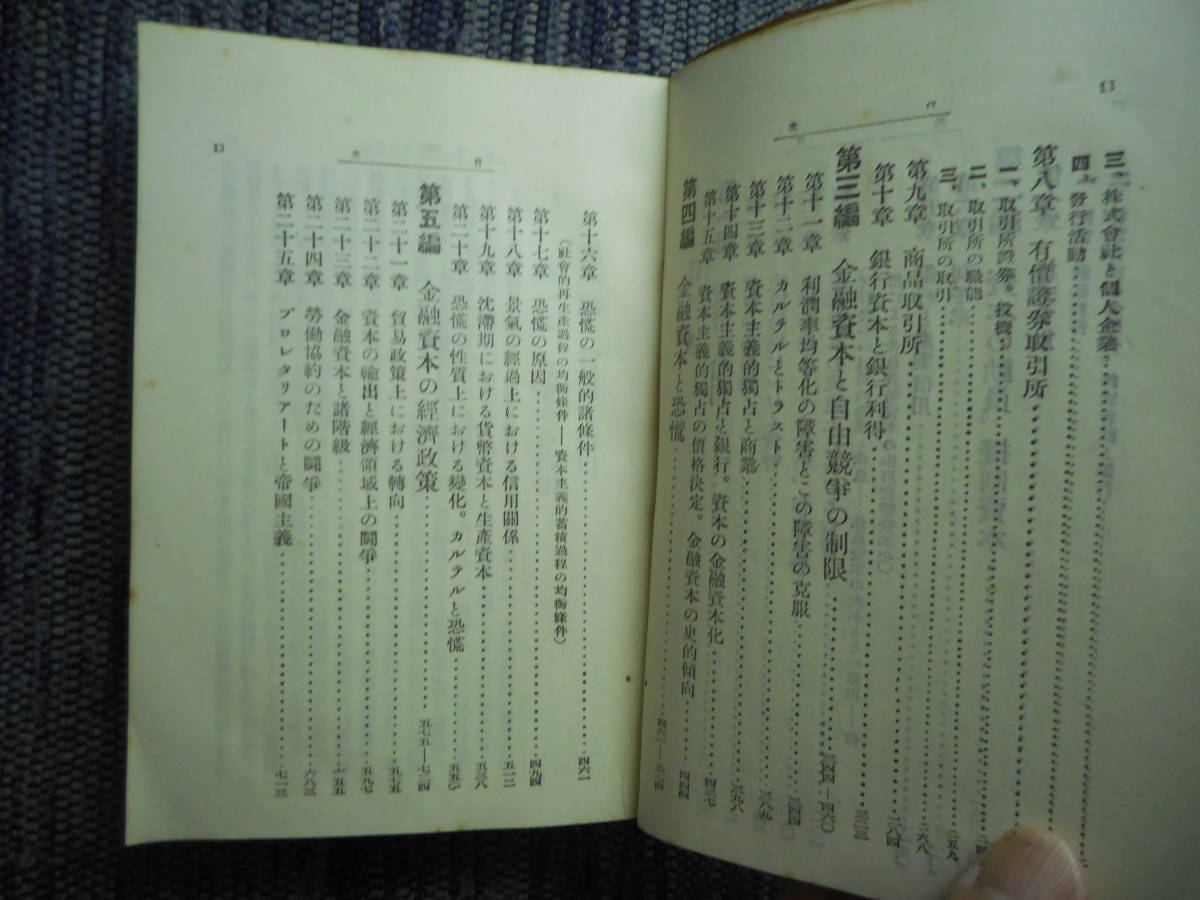 目次
三、株式會社と個人企業
四、發行活動
第八章 有價證券取引所
一、取引所證券。投機
二、取引所の職能
三、取引所の取引 二五九
第九章 商品取引所 二六八
第十章 銀行資本と銀行利得
第三編 金融資本と自由競爭の制限
第十一章 利潤率均等化の障害とこの障害の克服
第十二章 カルテルとトラスト
第十三章 資本主義的獨占と商業
第十四章 資本主義的獨占と銀行。資本の金融資本化
第十五章 資本主義的獨占の價格決定。金融資本の史的傾向
第四編 金融資本と恐慌
目次
第十六章 恐慌の一般的諸條件 四六一
(社會的再生產過程の均衡條件—資本主義的蓄積過程の均衡條件)
第十七章 恐慌の原因 四九四
第十八章 景氣の經過上における信用關係 五一二
第十九章 沈滯期における貨幣資本と生產資本 五三八
第二十章 恐慌の性質上における變化。カルテルと恐慌
第五編 金融資本の經濟政策 五七五—七二四
第二十一章 貿易政策上における轉向 五七五
第二十二章 資本の輸出と經濟領域上の鬪爭 五九七
第二十三章 金融資本と諸階級
第二十四章 勞働協約のための鬪爭 六八三
第二十五章 プロレタリアートと帝國主義 七一三